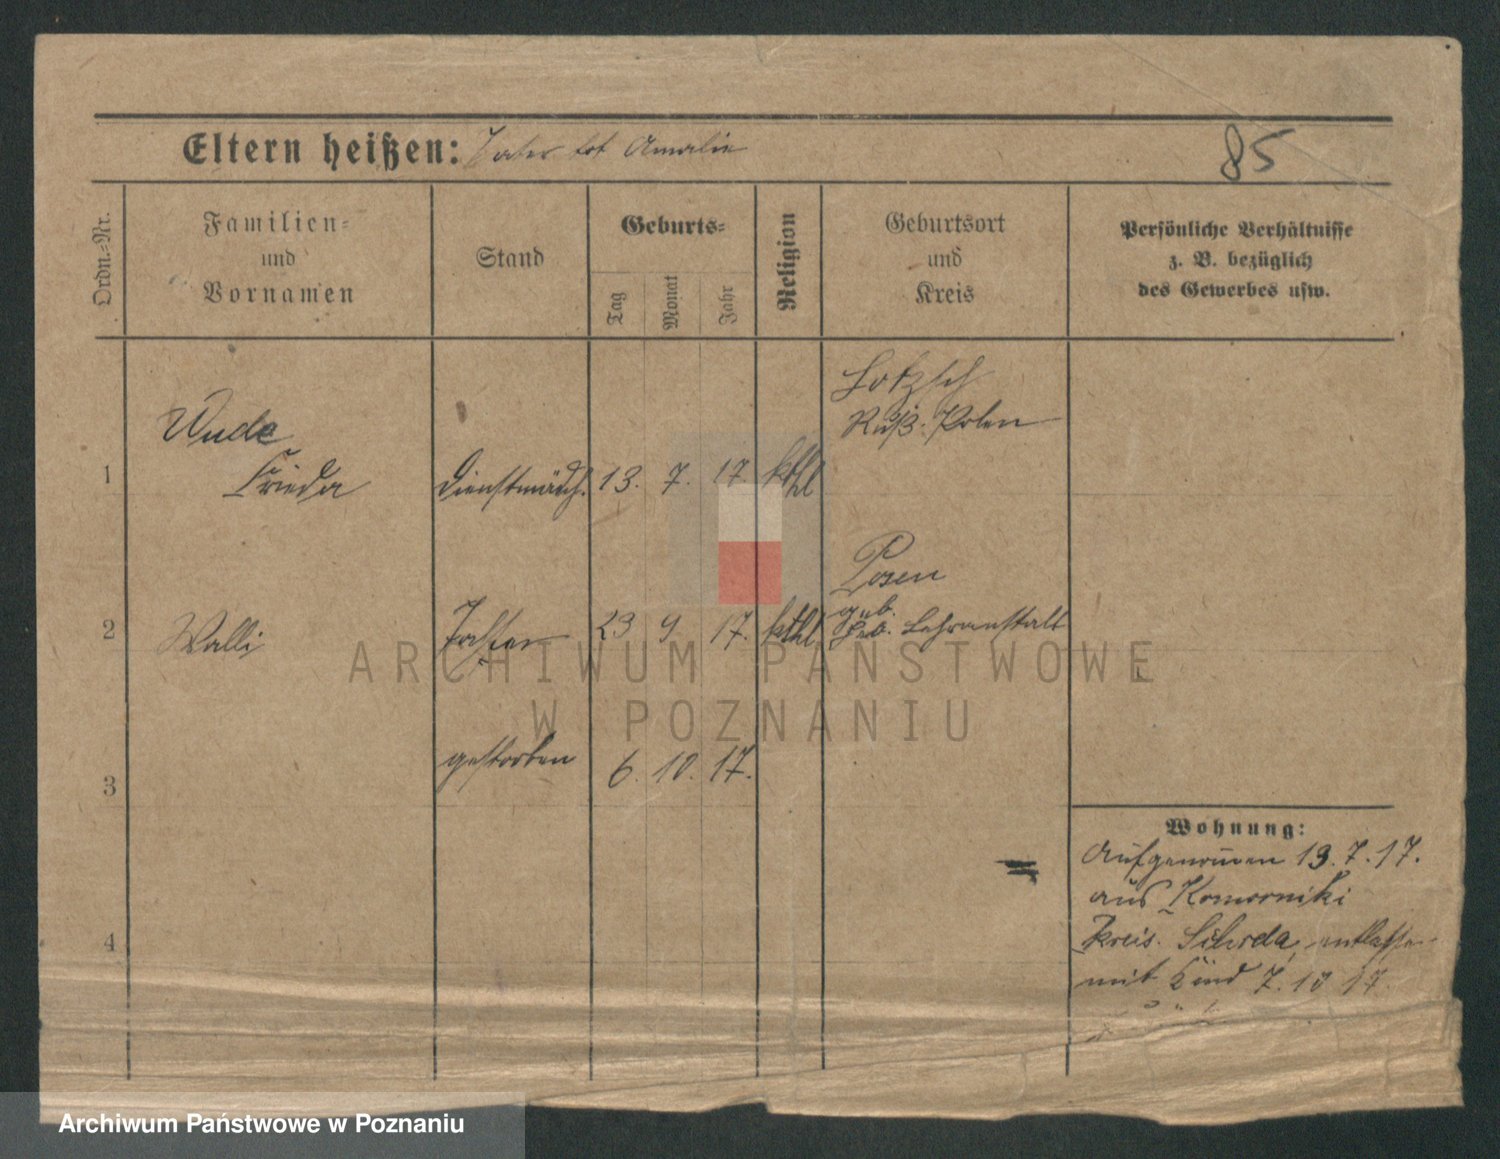 Eltern heißen: Vater tot Amalie
85
Ordn.=Nr.
Familien=
und
Vornamen
Stand
Geburts=
Tag
Monat
Jahr
Religion
Geburtsort
und
Kreis
Persönliche Verhältnisse
z. B. bezüglich
des Gewerbes usw.
Ruß. Polen
1
Frieda
Dienstmädch. 13. 7. 17 kthl
Posen
2 Walli Tochter 23 9 17. kthl
geb. Lehranstalt
3 gestorben 6. 10. 17.
4
Wohnung:
Aufgenommen 13. 7. 17.
aus Komorniki
Kreis
mit Kind 7. 10 17.
ARCHIWUM PAŃSTWOWE
W POZNANIU
Archiwum Państwowe w Poznaniu